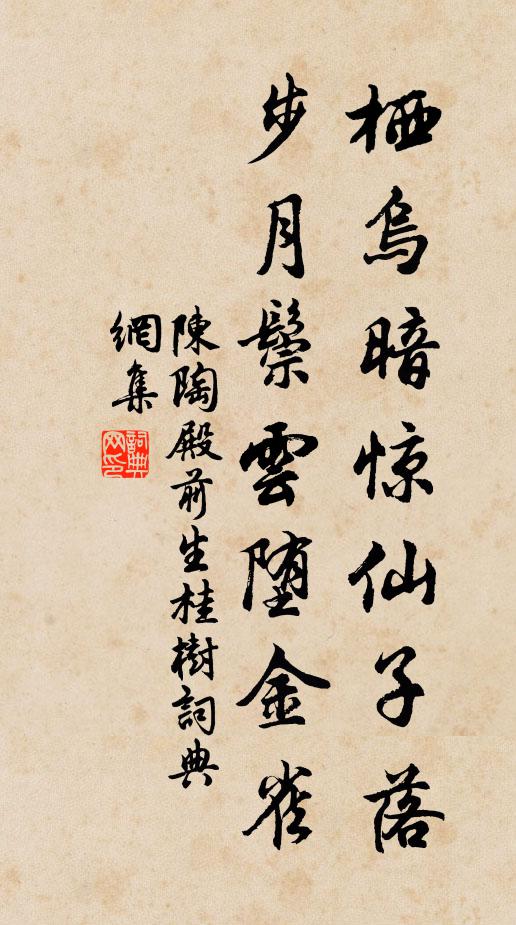 栖烏暗惊仙子落
步月鬓雲墮金雀
陳陶殿前生桂樹詞典
網集
詞典网印